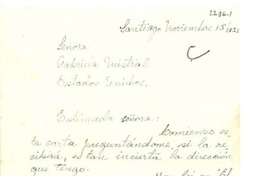 Santiago Noviembre 15/
Señora
Gabriela Mistral
Estados Unidos.
Estimada señora:
Comienzo es
ta carta preguntándome, si la re
cibirá, es tan incierta la dirección
que tengo.